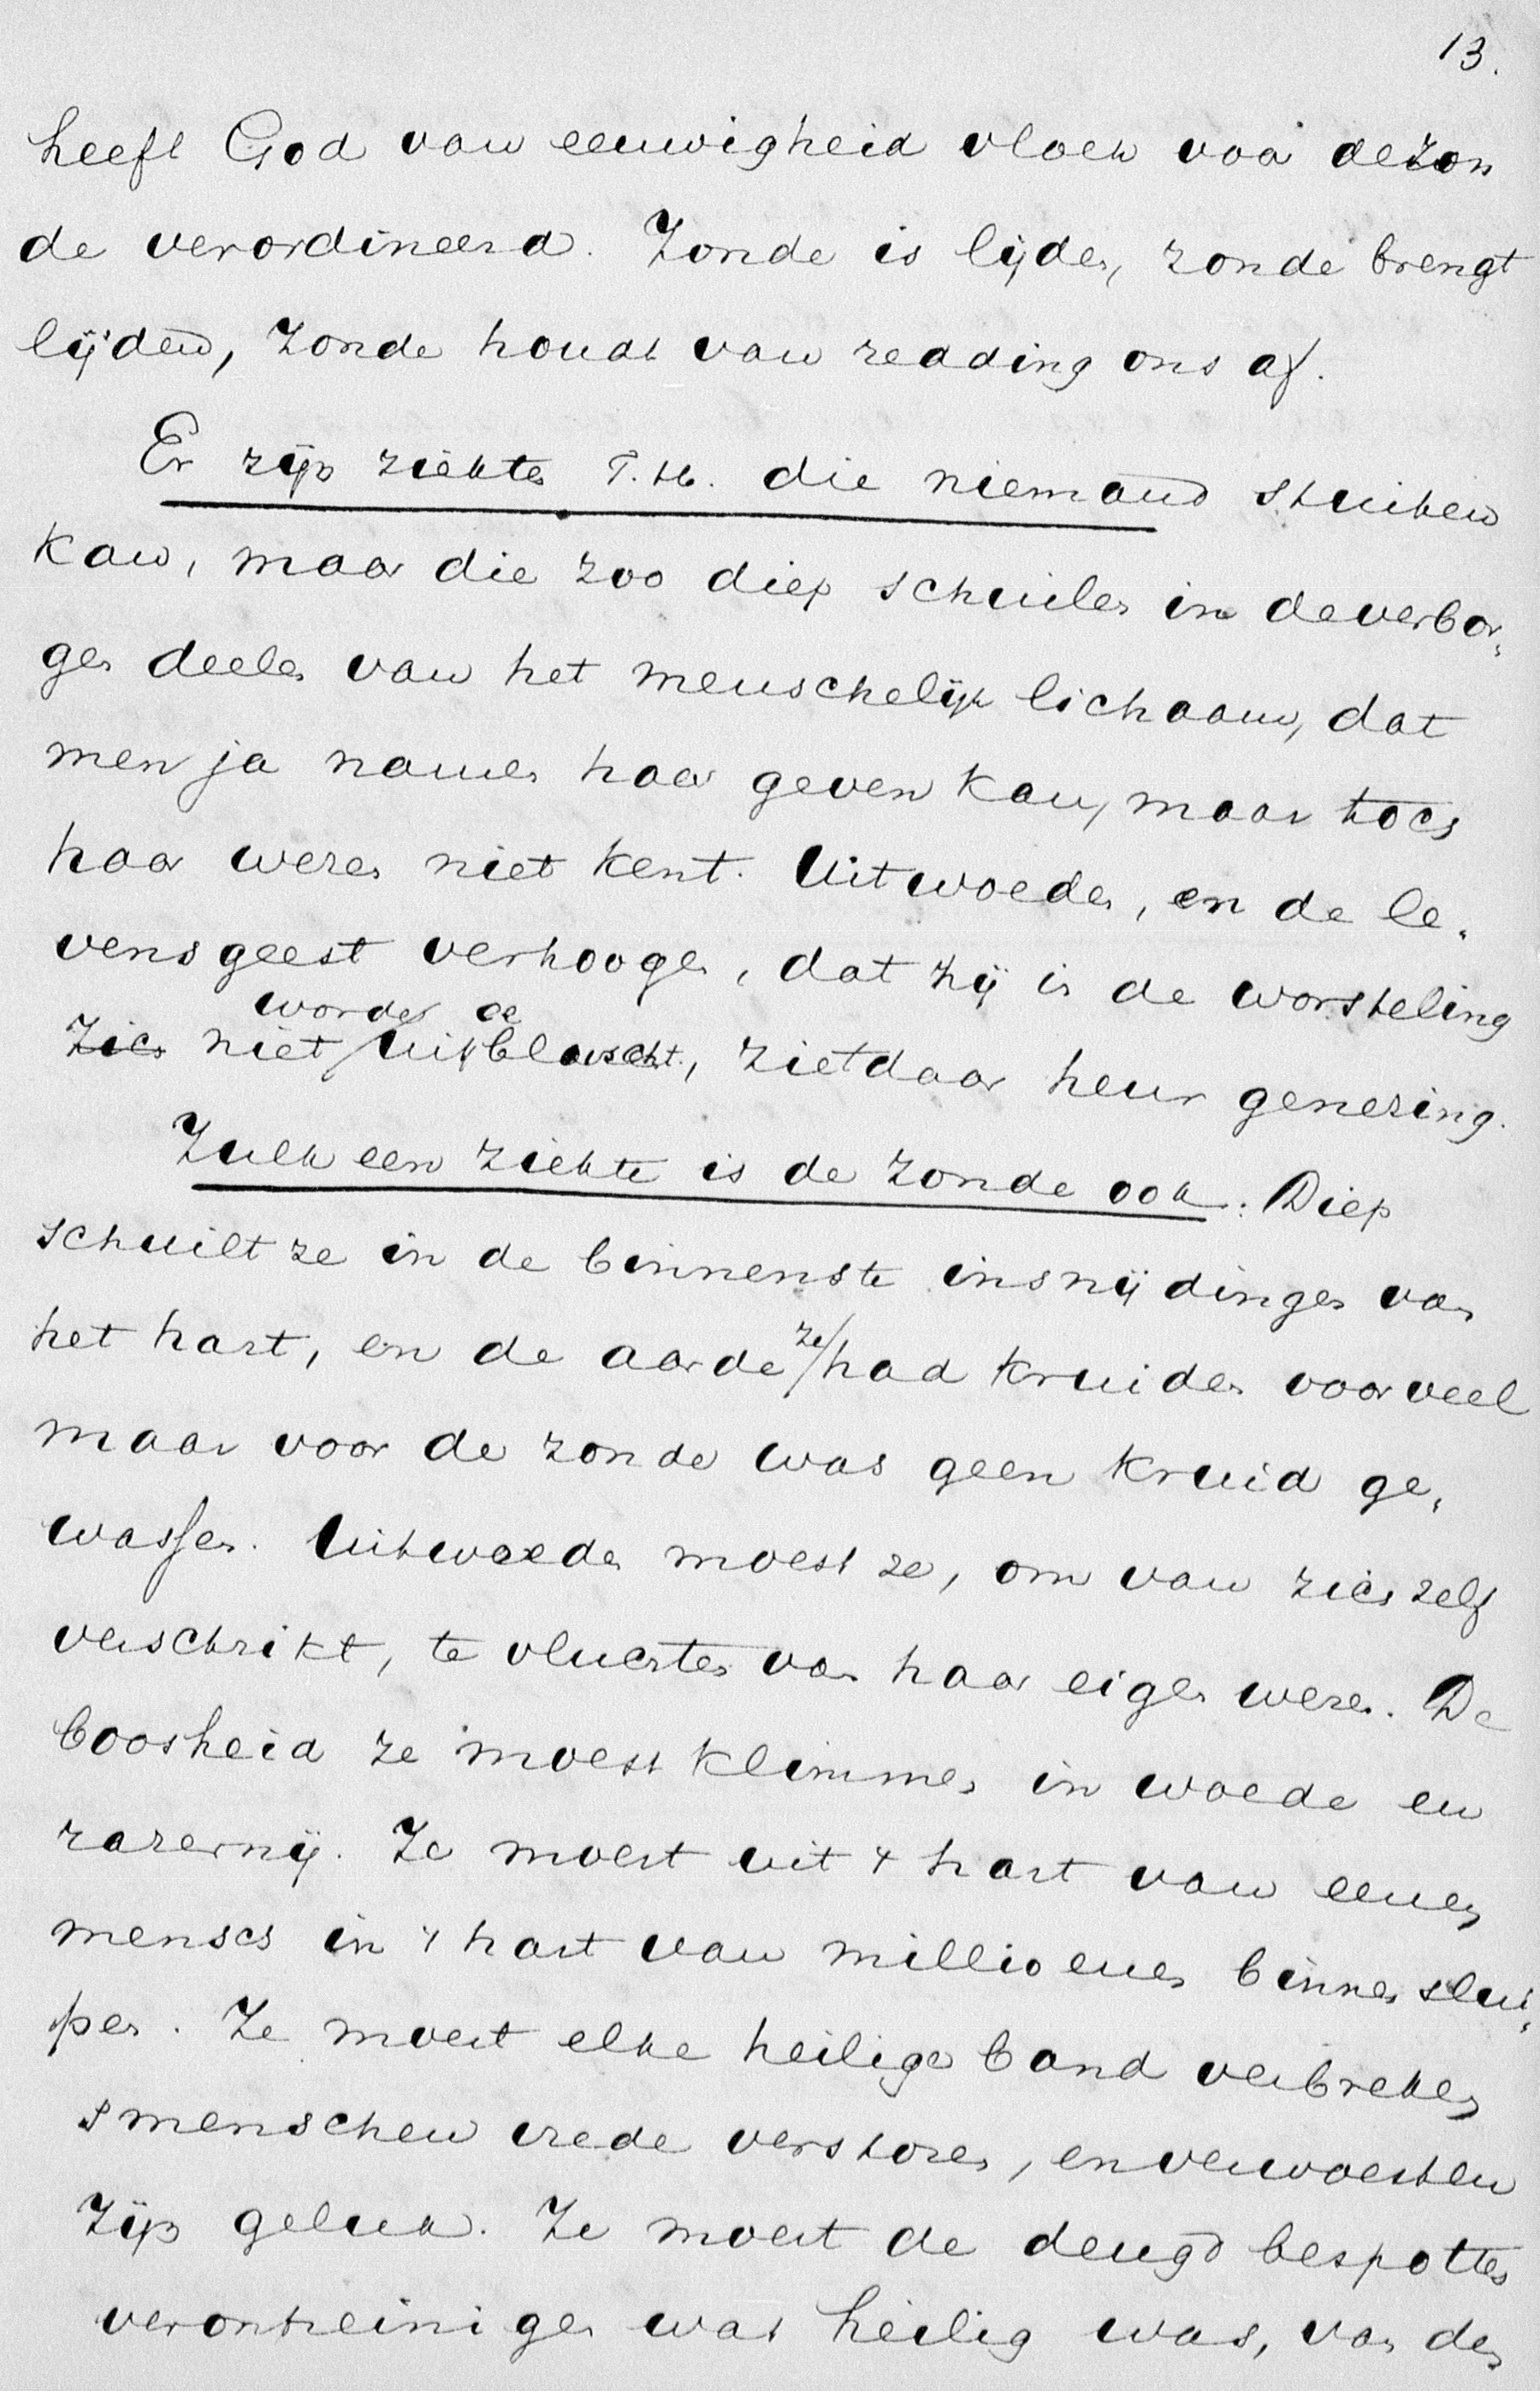 13.
heeft God van eeuwigheid vloek voor de zon
de verordineerd. Zonde is lijden, zonde brengt
lijden, Zonde houdt van redding ons af.
Er zijn ziekten T.H. die niemand stuiten
kan, maar die zoo diep schuilen in de verbor„
gen deelen van het menschelijk lichaam, dat
men ja namen haar geven kan, maar toch
haar wezen niet kent. Uitwoeden, en de le„
vensgeest verhoogen, dat hij in de worsteling
worde ge
zich niet uitbluscht, zietdaar heur genezing.
Zulk een ziekte is de zonde ook. Diep
schuilt ze in de binnenste insnijdingen van
het hart, en de aarde ze/ had kruiden voor veel
maar voor de zonde was geen kruid ge„
wassen. Uitwoeden moest ze, om van zich zelf
verschrikt, te vluchten van haar eigen wezen. De
boosheid ze moest klimmen in woede en
razernij. Ze moest uit 't hart van eenen
mensch in 't hart van millioenen binnen slui„
pen. Ze moest elke heilige band verbreken
smenschen vrede verstoren, en verwoesten
zijn geluk. Ze moest de deugd bespotten
verontreinigen wat heilig was, van den